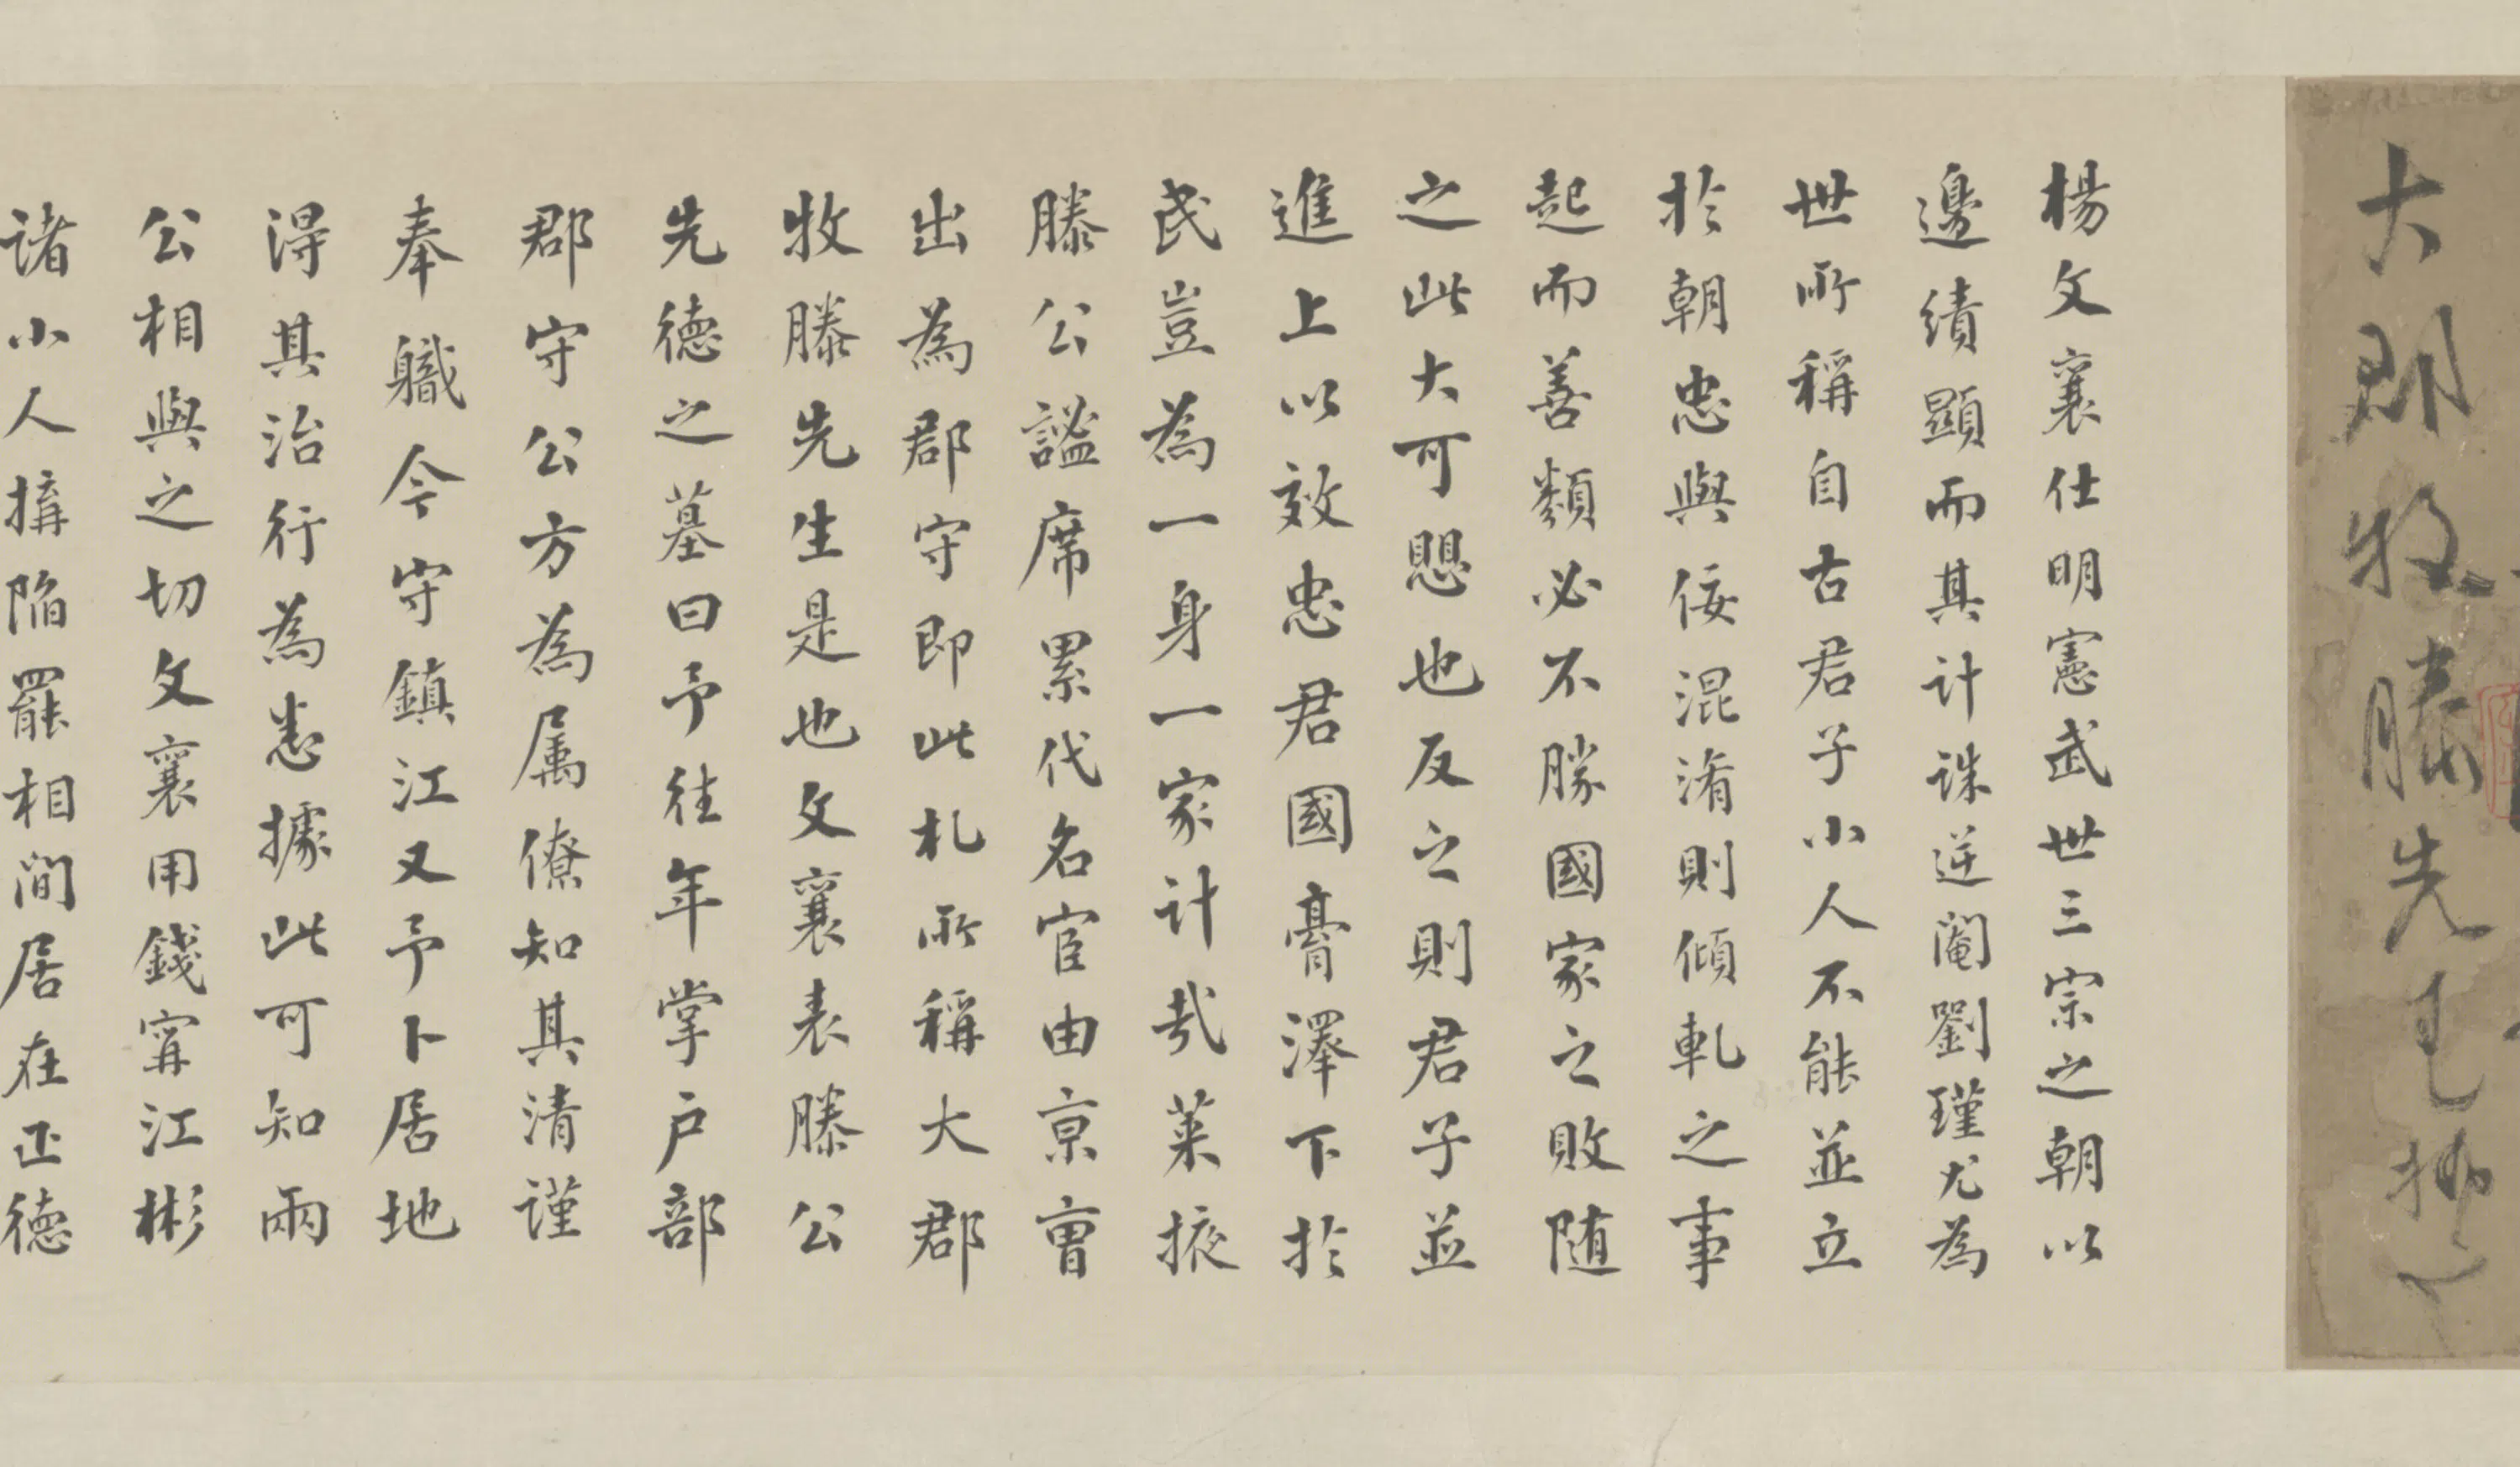 大郡牧滕先生執事
楊文襄仕明憲武世三宗之朝以
邊績顯而其計誅逆閹劉瑾尤為
世所稱自古君子小人不能並立
於朝忠與佞混淆則傾軋之事
起而善類必不勝國家之敗随
之此大可愳也反之則君子並
進上以效忠君國膏澤下於
民豈為一身一家計哉萊掖
滕公謐席累代名宦由京曹
出為郡守即此札所稱大郡
牧滕先生是也文襄表滕公
先德之墓曰予往年掌户部
郡守公方為属僚知其清謹
奉職今守鎮江又予卜居地
淂其治行為悉據此可知兩
公相與之切文襄用錢寧江彬
諸小人搆陷罷相閒居在正德